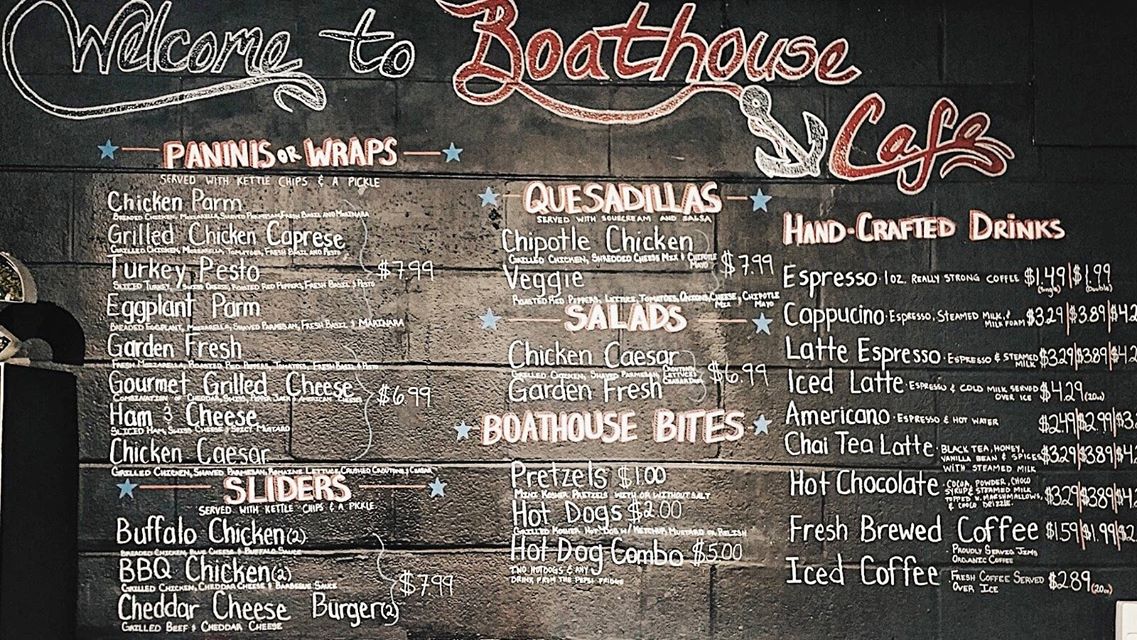 Welcome to Boathouse
Cafe
PANINIS OR WRAPS
SERVED WITH KETTLE CHIPS & A PICKLE
Chicken Parm
BREADED CHICKEN, MOZZARELLA, SHAVED PARMESAN, FRESH BASIL AND MARINARA
Grilled Chicken Caprese
GRILLED CHICKEN, MOZZARELLA, TOMATOES, FRESH BASIL AND PESTO
Turkey Pesto
$7.99
SLICED TURKEY, SWISS CHEESE, ROASTED RED PEPPERS, FRESH BASIL & PESTO
Eggplant Parm
BREADED EGGPLANT, MOZZARELLA, SHAVED PARMESAN, FRESH BASIL & MARINARA
Garden Fresh
FRESH MOZZARELLA, ROASTED RED PEPPERS, TOMATOES, FRESH BASIL & PESTO
Gourmet Grilled Cheese
COMBINATION OF CHEDDAR, SWISS, PEPPER JACK & AMERICAN CHEESES
$6.99
Ham & Cheese
SLICED HAM, SWISS CHEESE & SPICY MUSTARD
Chicken Caesar
GRILLED CHICKEN, SHAVED PARMESAN, ROMAINE LETTUCE, CRUSHED CROUTONS & CAESAR
SLIDERS
SERVED WITH KETTLE CHIPS & A PICKLE
Buffalo Chicken (2)
BREADED CHICKEN, BLUE CHEESE & BUFFALO SAUCE
BBQ Chicken (2)
GRILLED CHICKEN, CHEDDAR CHEESE & BARBEQUE SAUCE
$7.99
Cheddar Cheese Burger (2)
GRILLED BEEF & CHEDDAR CHEESE
QUESADILLAS
SERVED WITH SOURCREAM AND SALSA
Chipotle Chicken
GRILLED CHICKEN, SHREDDED CHEESE MIX & CHIPOTLE
MAYO
$7.99
Veggie
ROASTED RED PEPPERS, LETTUCE, TOMATOES, ONIONS, CHEESE, CHIPOTLE
MIX MAYO
SALADS
Chicken Caesar
GRILLED CHICKEN, SHAVED PARMESAN
$6.99
Garden Fresh
BOATHOUSE BITES
Pretzels $1.00
MINI KOSHER PRETZELS WITH OR WITHOUT SALT
Hot Dogs $2.00
GRILLED KOSHER HOT DOG W/ KETCHUP, MUSTARD OR RELISH
Hot Dog Combo $5.00
TWO HOTDOGS & ANY
DRINK FROM THE PEPSI FRIDGE
HAND-CRAFTED DRINKS
Espresso · 1 OZ. REALLY STRONG COFFEE $1.49 | $1.99
(Single) (Double)
Cappucino · ESPRESSO, STEAMED MILK, & $3.29 | $3.89 | $4.2
MILK FOAM
Latte Espresso · ESPRESSO & STEAMED $3.29 | $3.89 | $4.2
MILK
Iced Latte · ESPRESSO & COLD MILK SERVED $4.29 (20oz)
OVER ICE
Americano · ESPRESSO & HOT WATER $2.49 | $2.99 | $3.
Chai Tea Latte · BLACK TEA, HONEY,
VANILLA BEAN & SPICES $3.29 | $3.89 | $4.2
WITH STEAMED MILK
Hot Chocolate · COCOA, POWDER, CHOCO
SYRUP & STEAMED MILK $3.29 | $3.89 | $4.
TOPPED W. MARSHMALLOWS,
& CHOCO DRIZZLE
Fresh Brewed Coffee $1.59 | $1.99 | $2.
PROUDLY SERVING JIM'S
ORGANIC COFFEE
Iced Coffee FRESH COFFEE SERVED $2.89 (20oz)
OVER ICE